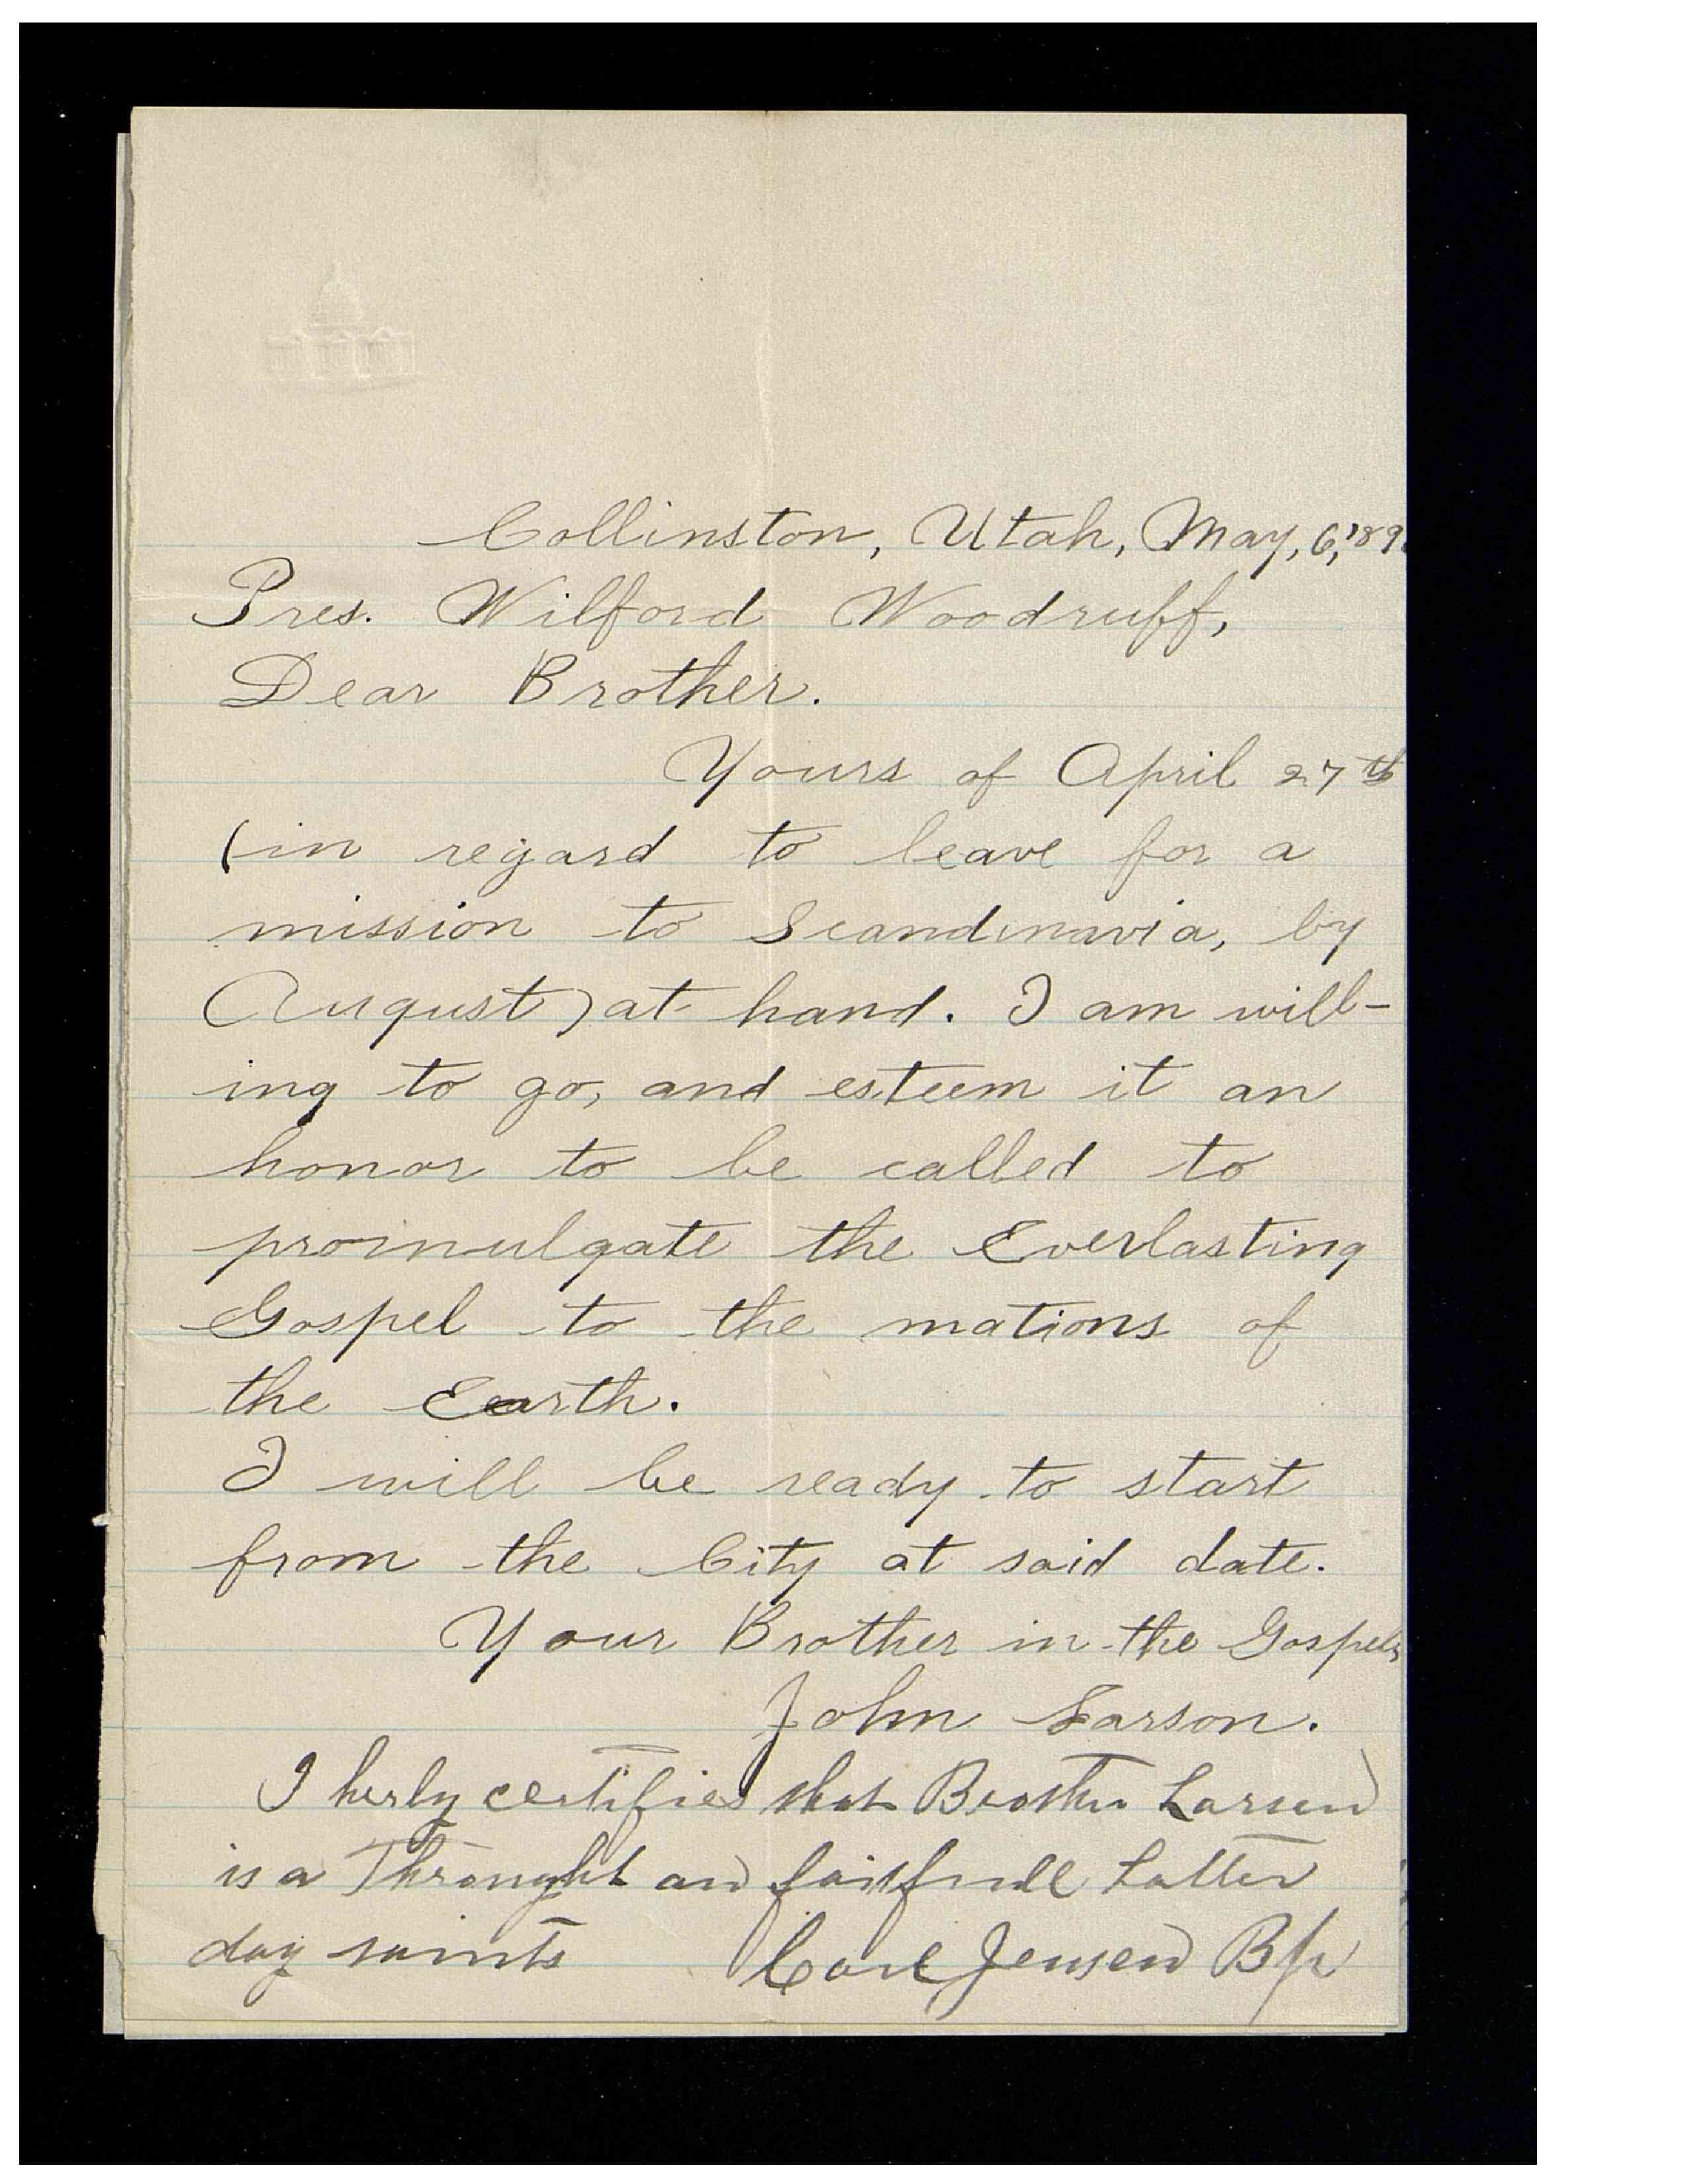 Collinston, Utah, May, 6, '89
Pres. Wilford Woodruff,
Dear Brother.
Yours of April 27th
(in regard to leave for a
mission to Scandinavia, by
August) at hand. I am will-
ing to go, and esteem it an
honor to be called to
promulgate the Everlasting
Gospel to the nations of
the Earth.
I will be ready to start
from the City at said date.
Your Brother in the Gospel,
John Larson.
I herby certifies that Brother Larsen
is a Throught and faithfull Latter
day saints Carl Jensen Bp